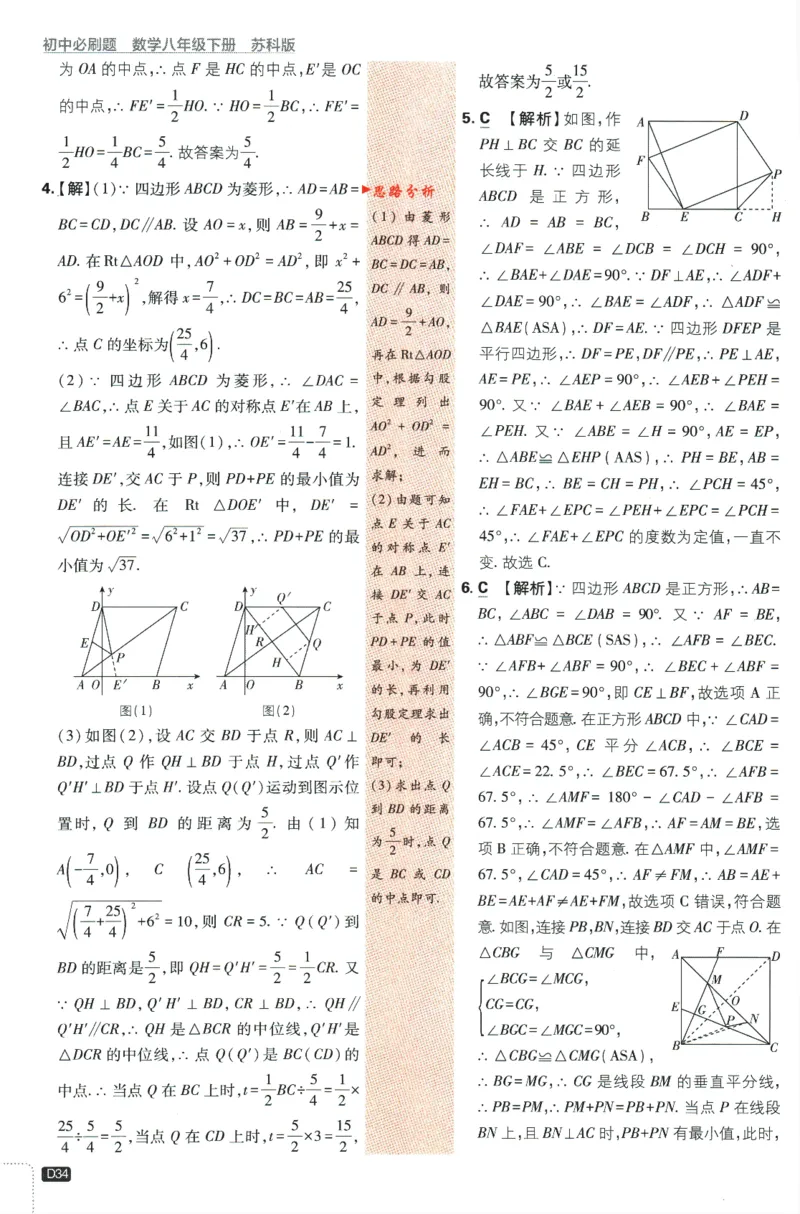 初中必刷题 数学八年级下册 苏科版
为 OA 的中点,∴ 点 F 是 HC 的中点,E′是 OC
的中点,∴ FE′=1/2HO. ∵ HO=1/2BC,∴ FE′=
1/2HO=1/4BC=5/4. 故答案为5/4.
4.【解】(1)∵ 四边形 ABCD 为菱形,∴ AD=AB=
BC=CD,DC∥AB. 设 AO=x,则 AB=9/2+x=
AD. 在Rt△AOD 中,AO²+OD²=AD²,即 x²+
6²=(9/2+x)²,解得 x=7/4,∴ DC=BC=AB=25/4,
∴ 点 C 的坐标为(25/4,6).
(2)∵ 四边形 ABCD 为菱形,∴ ∠DAC =
∠BAC,∴ 点 E 关于 AC 的对称点 E′在 AB 上,
且 AE′=AE=11/4,如图(1),∴ OE′=11/4-7/4=1.
连接 DE′,交 AC 于 P,则 PD+PE 的最小值为
DE′ 的 长. 在 Rt △DOE′ 中, DE′ =
√(OD²+OE′²)=√(6²+1²)=√37,∴ PD+PE 的最
小值为 √37.
y
D
C
E
P
A O E′ B x
图(1)
y
Q′
D
C
H′
R
Q
H
A O B x
图(2)
(3)如图(2),设 AC 交 BD 于点 R,则 AC⊥
BD,过点 Q 作 QH⊥BD 于点 H,过点 Q′作
Q′H′⊥BD 于点 H′. 设点 Q(Q′)运动到图示位
置时, Q 到 BD 的距离为 5/2. 由 (1) 知
A(-7/4,0), C (25/4,6), ∴ AC =
√((7/4+25/4)²+6²)=10,则 CR=5. ∵ Q(Q′)到
BD 的距离是5/2,即 QH=Q′H′=5/2=1/2CR. 又
∵ QH⊥BD, Q′H′⊥BD, CR⊥BD,∴ QH∥
Q′H′∥CR,∴ QH 是△BCR 的中位线,Q′H′是
△DCR 的中位线,∴ 点 Q(Q′)是 BC(CD)的
中点.∴ 当点 Q 在 BC 上时,t=1/2BC÷5/4=1/2×
25/4÷5/4=5/2,当点 Q 在 CD 上时,t=5/2×3=15/2,
思路分析
(1) 由 菱 形
ABCD 得 AD=
BC=DC=AB,
DC∥AB, 则
AD=9/2+AO,
再在 Rt△AOD
中,根据勾股
定 理 列 出
AO² + OD² =
AD², 进 而
求解;
(2)由题可知
点 E 关于 AC
的对称点 E′
在 AB 上,连
接 DE′交 AC
于点 P,此时
PD+PE 的值
最小,为 DE′
的长,再利用
勾股定理求出
DE′ 的 长
即可;
(3)求出点 Q
到 BD 的距离
为5/2时,点 Q
是 BC 或 CD
的中点即可.
故答案为5/2或15/2.
5. C 【解析】如图,作
PH⊥BC 交 BC 的延
长线于 H. ∵ 四边形
ABCD 是 正 方 形,
∴ AD = AB = BC,
A
D
F
P
B E C H
∠DAF= ∠ABE = ∠DCB = ∠DCH = 90°,
∴ ∠BAE+∠DAE=90°. ∵ DF⊥AE,∴ ∠ADF+
∠DAE=90°,∴ ∠BAE=∠ADF,∴ △ADF≌
△BAE(ASA),∴ DF=AE. ∵ 四边形 DFEP 是
平行四边形,∴ DF=PE,DF∥PE,∴ PE⊥AE,
AE=PE,∴ ∠AEP=90°,∴ ∠AEB+∠PEH=
90°. 又∵ ∠BAE+∠AEB=90°,∴ ∠BAE=
∠PEH. 又∵ ∠ABE=∠H=90°,AE=EP,
∴ △ABE≌△EHP(AAS),∴ PH=BE,AB=
EH=BC,∴ BE=CH=PH,∴ ∠PCH=45°,
∴ ∠FAE+∠EPC=∠PEH+∠EPC=∠PCH=
45°,∴ ∠FAE+∠EPC 的度数为定值,一直不
变. 故选 C.
6. C 【解析】∵ 四边形 ABCD 是正方形,∴ AB=
BC, ∠ABC = ∠DAB = 90°. 又 ∵ AF = BE,
∴ △ABF≌△BCE(SAS),∴ ∠AFB=∠BEC.
∵ ∠AFB+∠ABF=90°,∴ ∠BEC+∠ABF=
90°,∴ ∠BGE=90°,即 CE⊥BF,故选项 A 正
确,不符合题意. 在正方形 ABCD 中,∵ ∠CAD=
∠ACB = 45°, CE 平分 ∠ACB,∴ ∠BCE =
∠ACE=22. 5°,∴ ∠BEC=67. 5°,∴ ∠AFB=
67. 5°,∴ ∠AMF= 180° - ∠CAD - ∠AFB =
67. 5°,∴ ∠AMF=∠AFB,∴ AF=AM=BE,选
项 B 正确,不符合题意. 在△AMF 中,∠AMF=
67. 5°,∠CAD=45°,∴ AF≠FM,∴ AB=AE+
BE=AE+AF≠AE+FM,故选项 C 错误,符合题
意. 如图,连接 PB,BN,连接 BD 交 AC 于点 O. 在
△CBG 与 △CMG 中,
∠BCG=∠MCG,
CG=CG,
∠BGC=∠MGC=90°,
∴ △CBG≌△CMG(ASA),
A F D
M
E G O
P N
B C
∴ BG=MG,∴ CG 是线段 BM 的垂直平分线,
∴ PB=PM,∴ PM+PN=PB+PN. 当点 P 在线段
BN 上,且 BN⊥AC 时,PB+PN 有最小值,此时,
D34